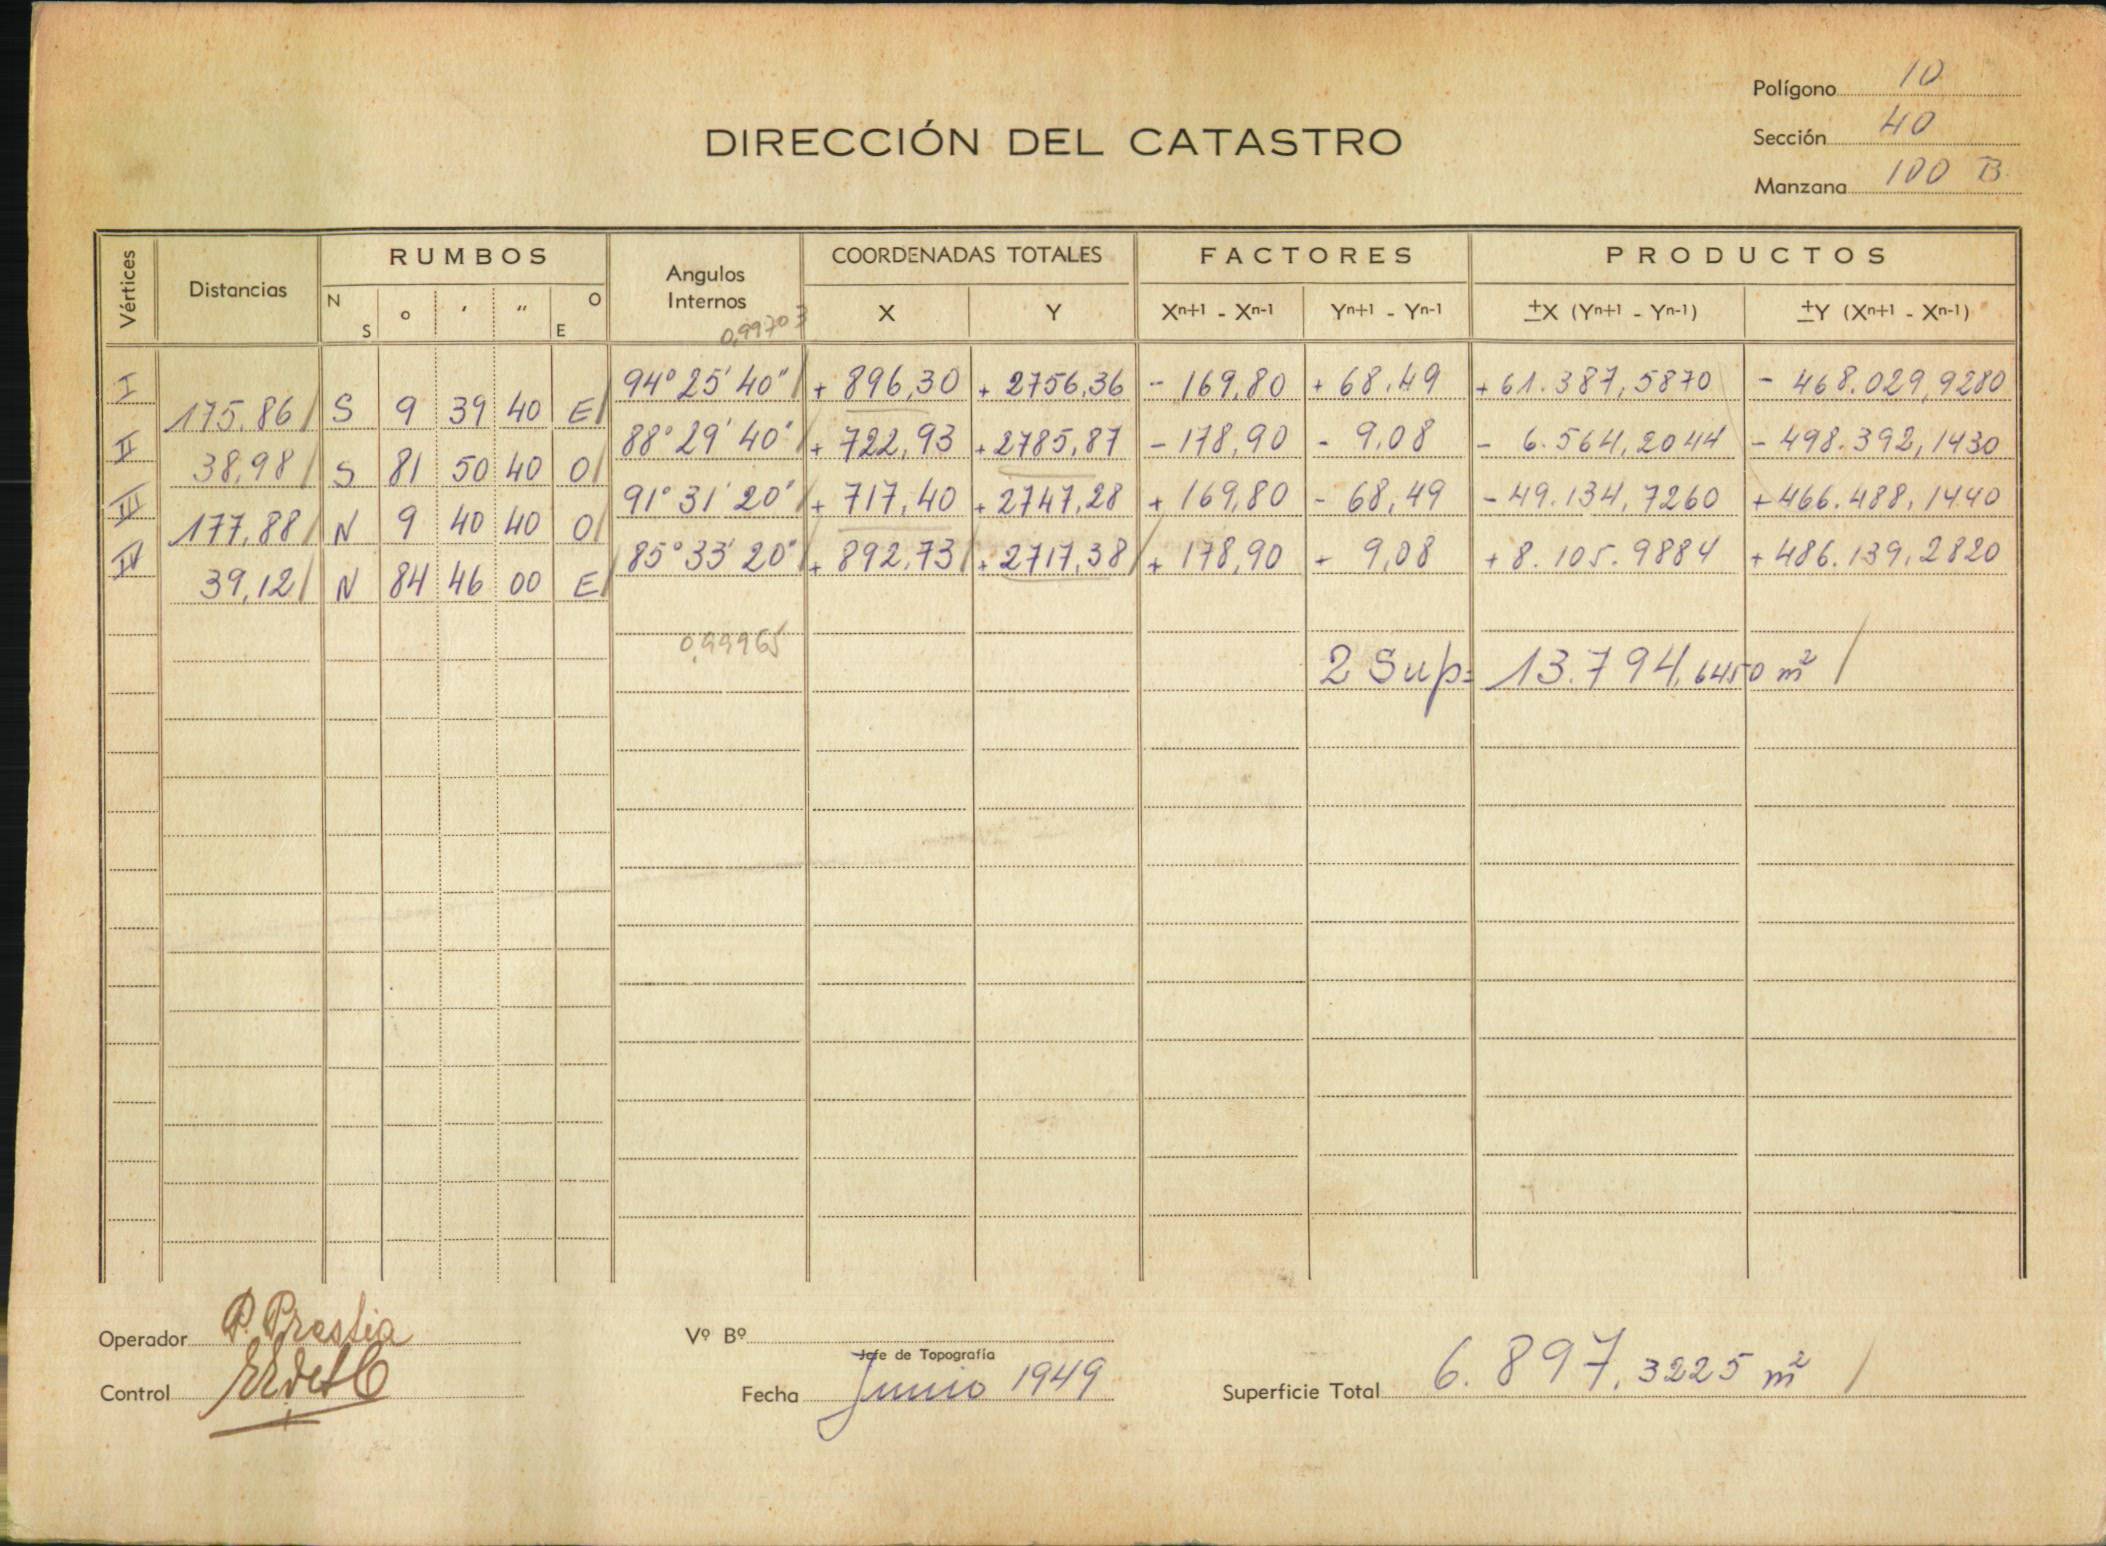 Polígono 10
DIRECCIÓN DEL CATASTRO
Sección 40
Manzana 100 B
Vértices Distancias RUMBOS Angulos Internos COORDENADAS TOTALES FACTORES PRODUCTOS
N S o ' " E O X Y Xn+1 - Xn-1 Yn+1 - Yn-1 ±X (Yn+1 - Yn-1) ±Y (Xn+1 - Xn-1)
0,99703
I 94° 25' 40" + 896,30 + 2756,36 - 169,80 + 68.49 + 61.387,5870 - 468.029,9280
175.86 S 9 39 40 E
II 88° 29' 40" + 722,93 + 2785,87 - 178,90 - 9,08 - 6.564,2044 - 498.392,1430
38,98 S 81 50 40 O
III 91° 31' 20" + 717,40 + 2747,28 + 169,80 - 68,49 - 49.134,7260 + 466.488,1440
177,88 N 9 40 40 O
IV 85° 33' 20" + 892,73 + 2717,38 + 178,90 + 9,08 + 8.105.9884 + 486.139,2820
39,12 N 84 46 00 E
0,99965
2 Sup = 13.794,6450 m²
Operador P. Prestia
Vº Bº
Jefe de Topografía
Control
Fecha Junio 1949
Superficie Total 6.897,3225 m²